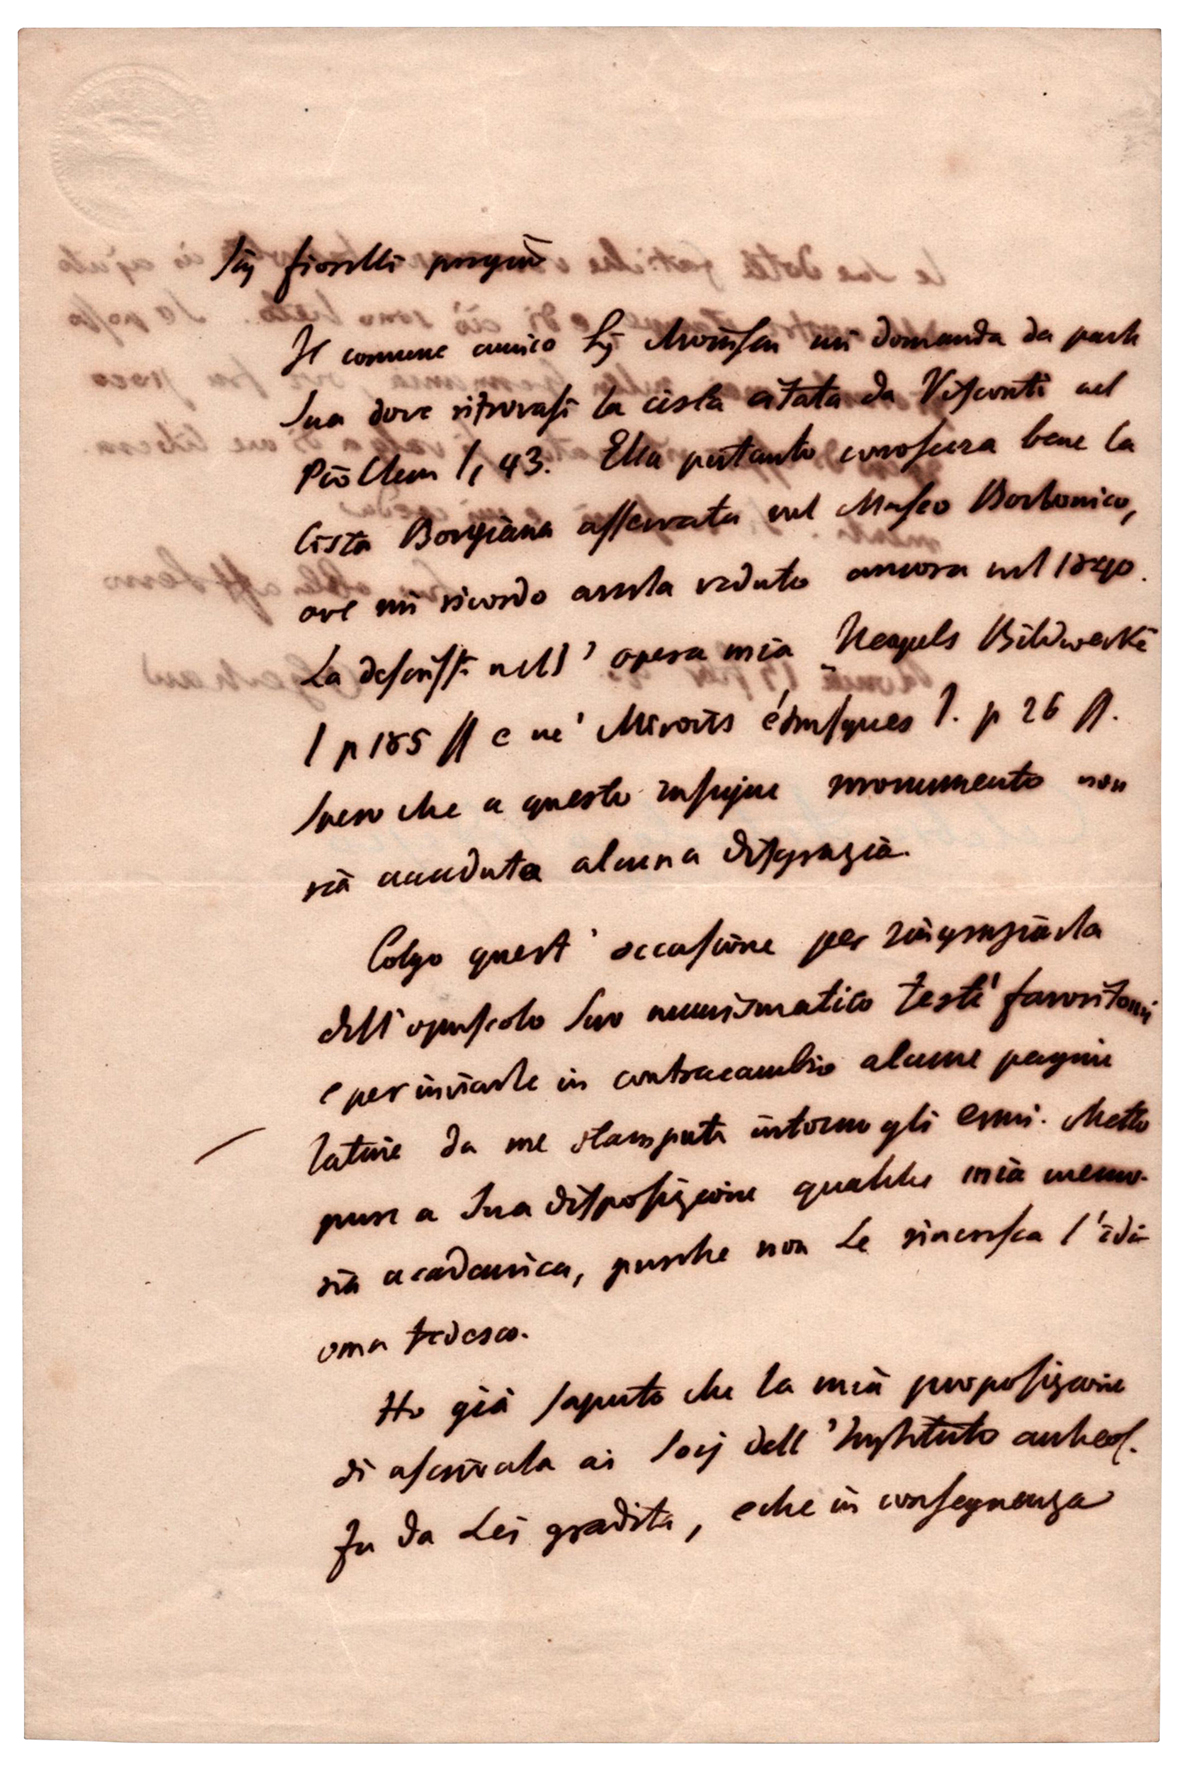 Sig Fiorelli pregmo
Il comune amico Sg Momsen mi domanda da parte
Sua dove ritrovasi la cista citata da Visconti nel
Pio Clem I, 43. Ella pertanto conoscera bene la
Cista Borgiana asservata nel Museo Borbonico,
ove mi ricordo averla veduto ancora nel 1840.
La descrissi nell' opera mia Neapels Bildwerke
I p 185 ff e ne' Miroirs étrusques I. p 26 ff.
Spero che a questo insigne monumento non
sia accaduta alcuna disgrazia.
Colgo quest' occasione per ringraziarla
dell' opuscolo Suo numismatico testé favoritomi
e per inviarle in contracambio alcune pagine
latine da me stampate intorno gli ermi. Metto
pure a Sua disposizione qualche mia memo-
ria academica, purche non Le rincresca l'idi-
oma tedesco.
Ho già saputo che la mia proposizione
di ascriverla ai Socj dell' Instituto archeol.
fu da Lei gradita, e che in conseguenza